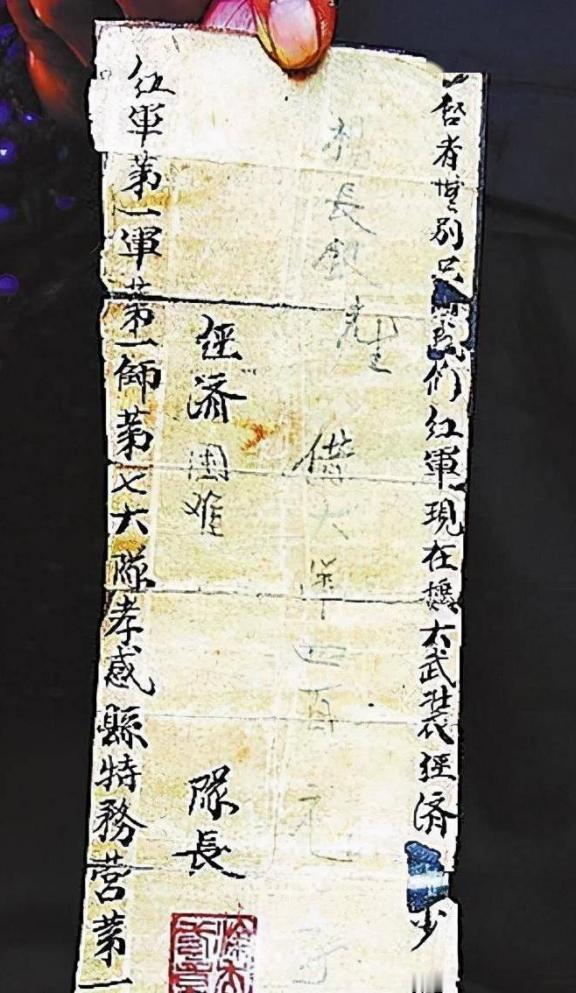 啓者 别 我们红軍現在擴大武装经济 少
楊長銀先生 借大洋四百元
经济困难
隊長
红軍第一軍第一師第七大隊孝感縣特務营第一